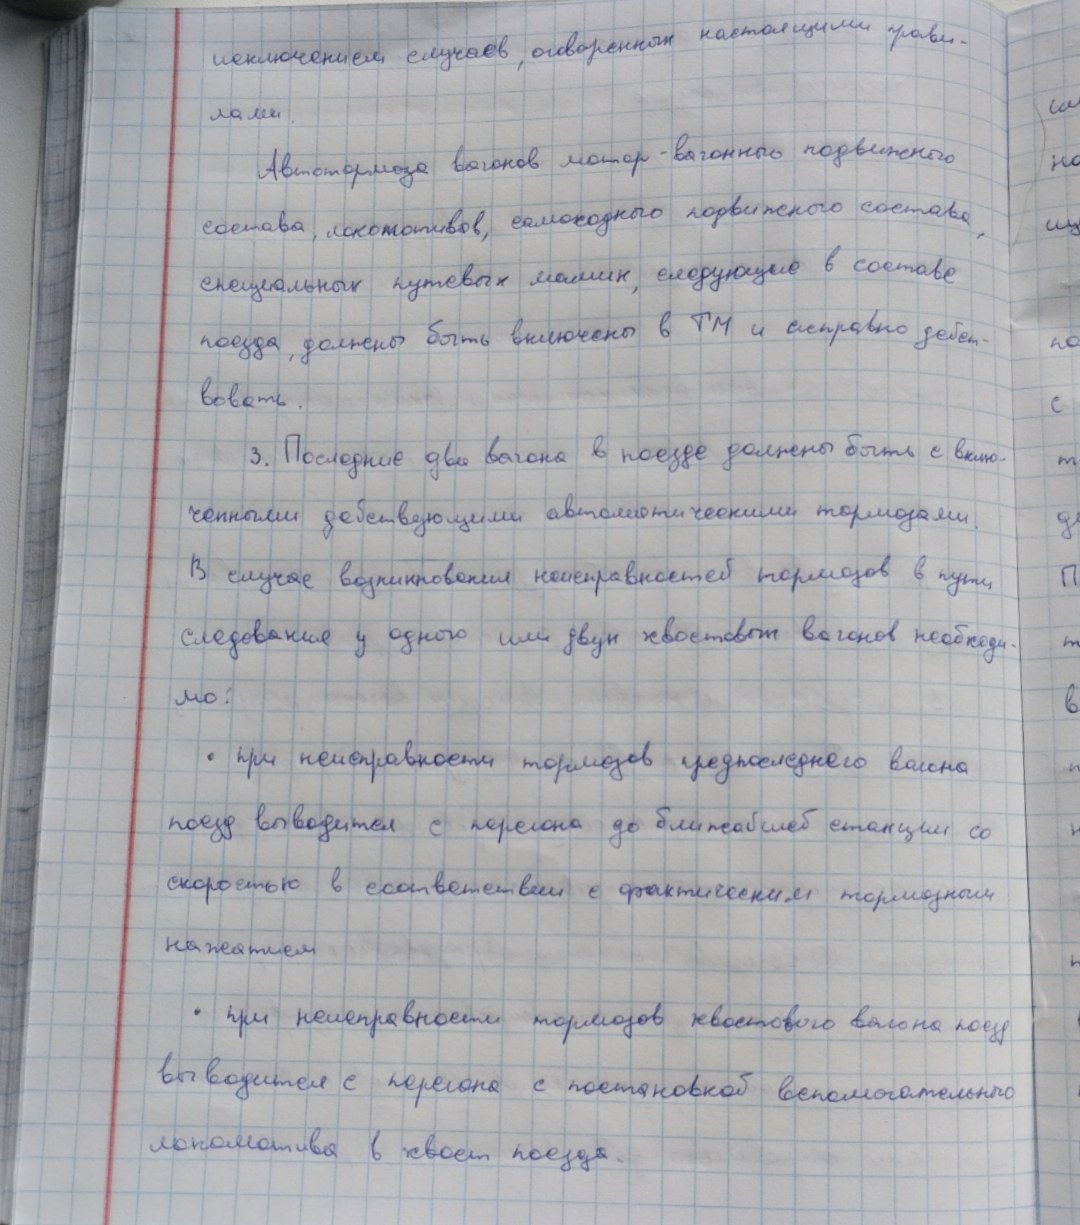 исключением случаев, оговоренных настоящими прави-
лами.
Автотормоза вагонов мотор-вагонного подвижного
состава, локомотивов, самоходного подвижного состава,
специальных путевых машин, следующие в составе
поезда, должны быть включены в ТМ и исправно дейст-
вовать.
3. Последние два вагона в поезде должны быть с вклю-
ченными действующими автоматическими тормозами.
В случае возникновения неисправностей тормозов в пути
следования у одного или двух хвостовых вагонов необходи-
мо:
• при неисправности тормозов предпоследнего вагона
поезд выводится с перегона до ближайшей станции со
скоростью в соответствии с фактическим тормозным
нажатием
• при неисправности тормозов хвостового вагона поезд
выводится с перегона с постановкой вспомогательного
локомотива в хвост поезда.